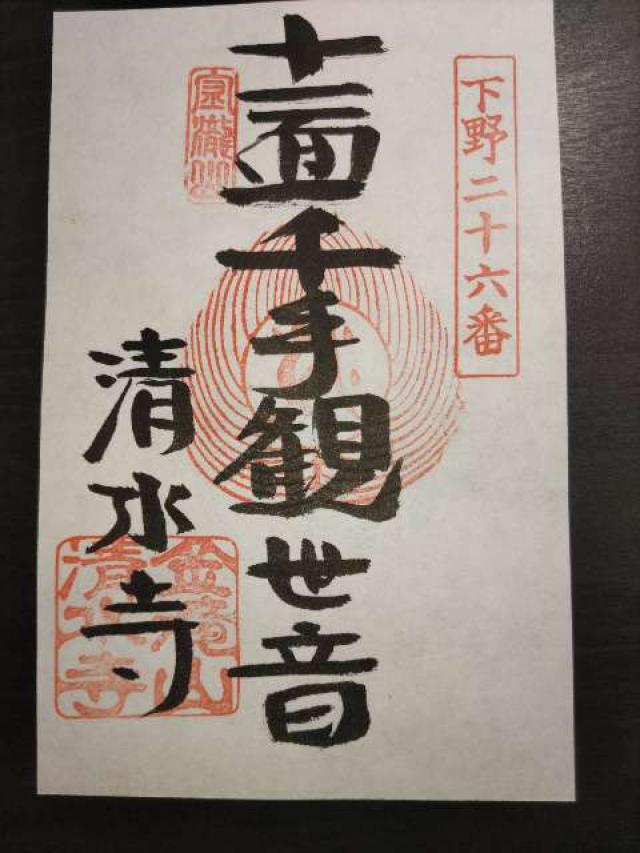 下野二十六番
十一面千手観世音
清水寺
清水寺